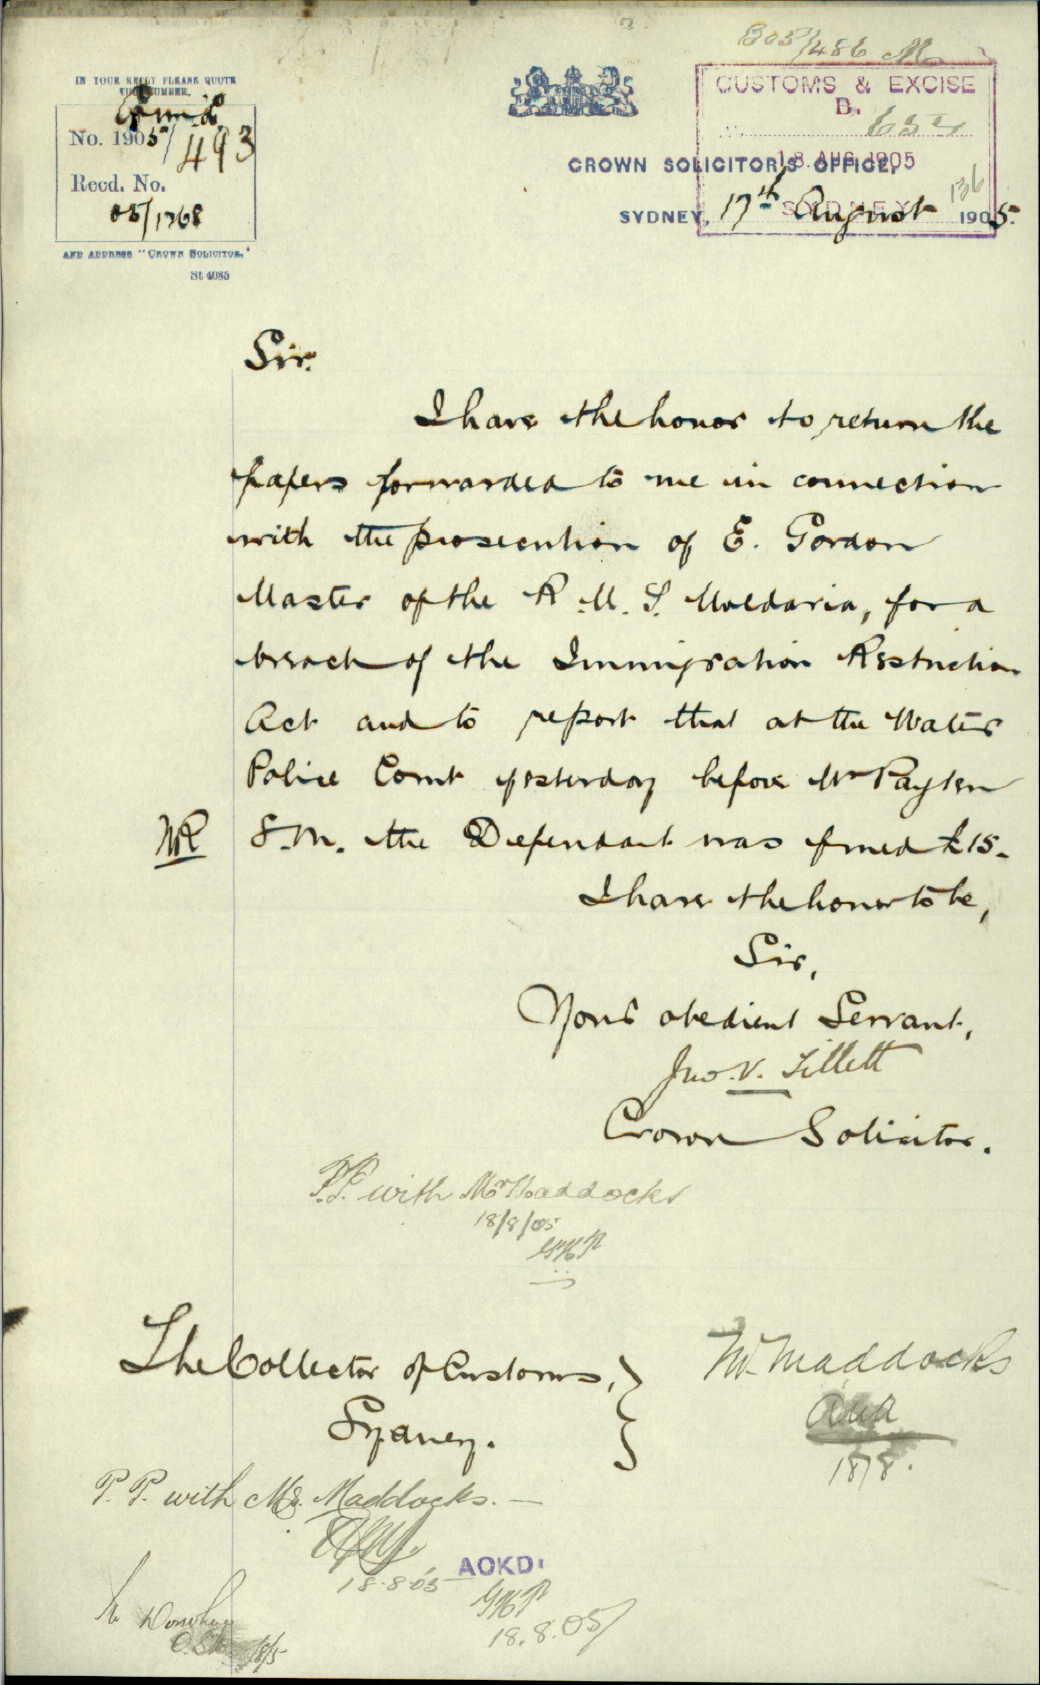 B05/486
IN YOUR REPLY PLEASE QUOTE
THIS NUMBER.
No. 1905/493
Recd. No.
05/1768
AND ADDRESS "CROWN SOLICITOR."
St 4085
CUSTOMS & EXCISE
D.
18. AUG. 1905
SYDNEY
CROWN SOLICITOR'S OFFICE,
136
SYDNEY, 17th August 1905.
Sir.
I have the honor to return the
papers forwarded to me in connection
with the prosecution of E. Gordon
Master of the R.M.S. Moldavia, for a
breach of the Immigration Restriction
Act and to report that at the Water
Police Court yesterday before Mr Payten
S.M. the Defendant was fined £15.
I have the honor to be,
Sir,
Your obedient Servant,
Jno. V. Tillett
Crown Solicitor.
P.P. with Mr Maddocks
18/8/05
GHP
The Collector of Customs,
Sydney.
Mr. Maddocks
18/8.
P.P. with Mr. Maddocks.—
18.8.05
ACKD.
GHP
18.8.05